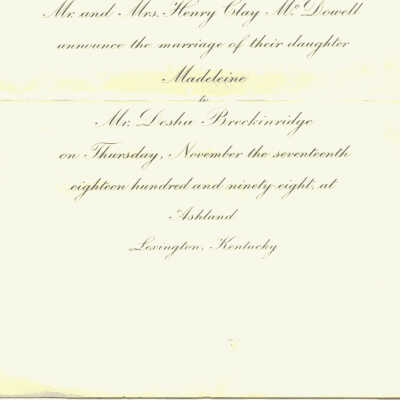 Mr. and Mrs. Henry Clay Mc Dowell
announce the marriage of their daughter
Madeleine
to
Mr. Desha Breckinridge
on Thursday, November the seventeenth
eighteen hundred and ninety-eight, at
Ashland
Lexington, Kentucky